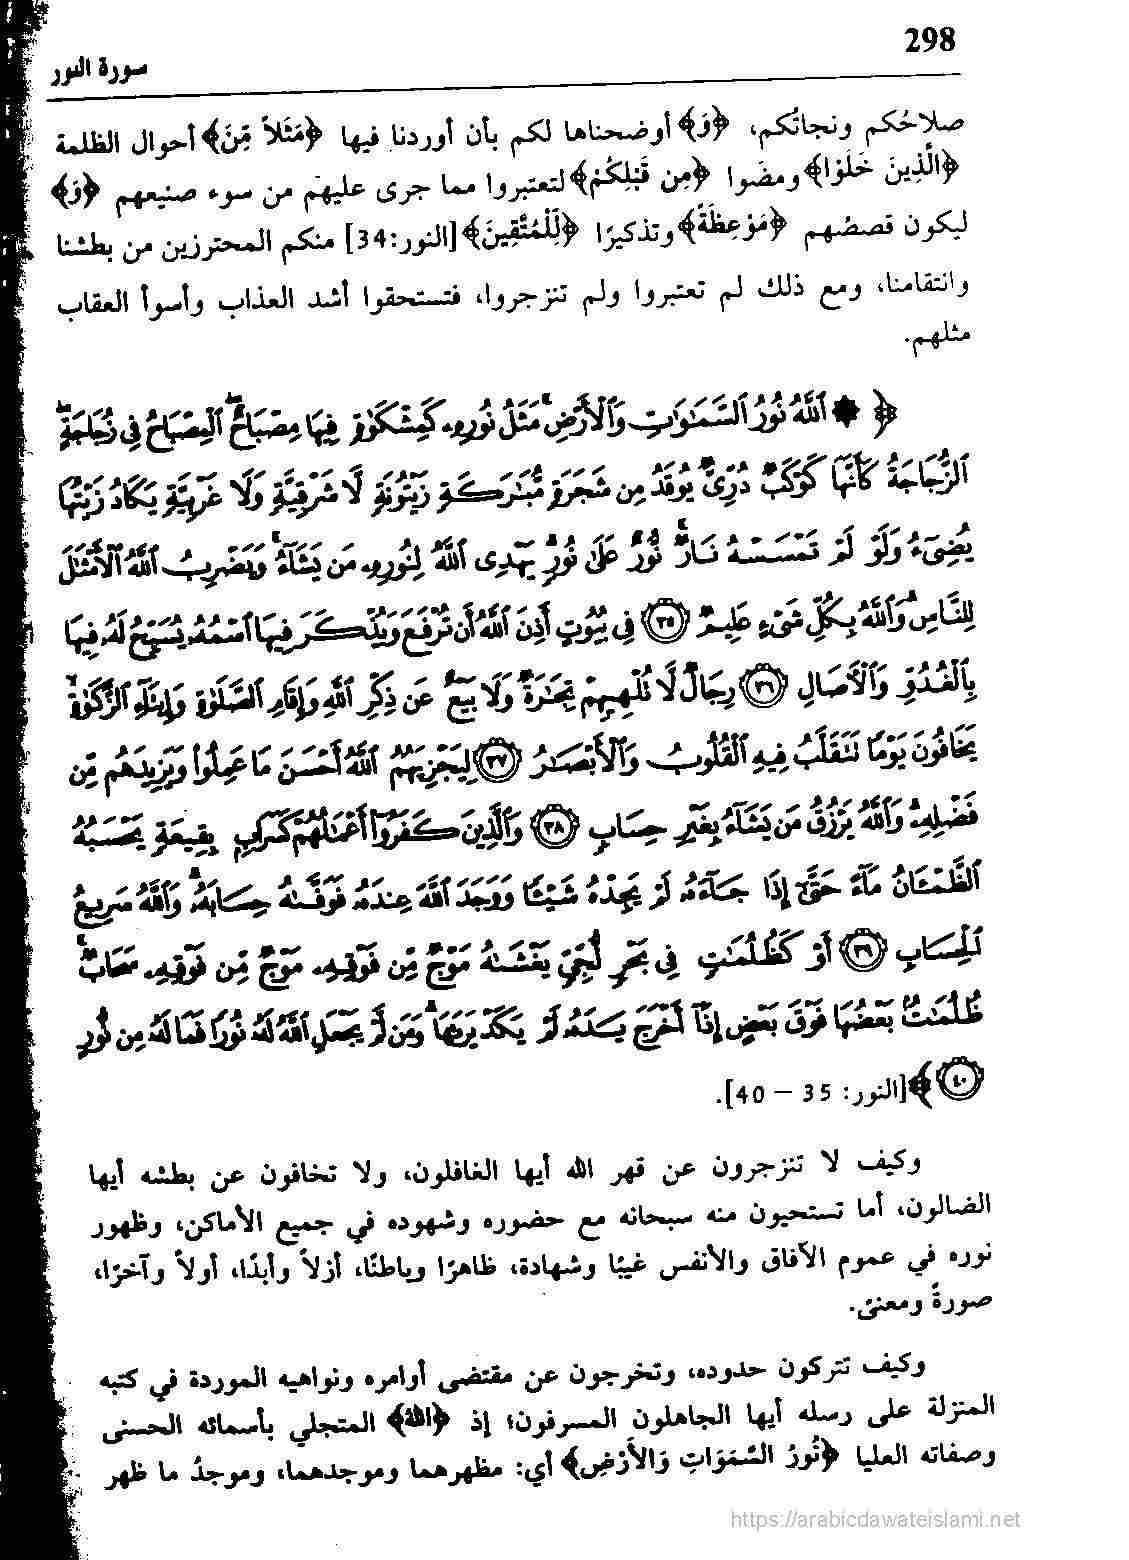 298
سورة النور
صلاحُكم ونجاتُكم، ﴿وَ﴾ أوضحناها لكم بأن أوردنا فيها ﴿مَثَلاً مِّنَ﴾ أحوال الظلمة
﴿الَّذِينَ خَلَوْا﴾ ومضَوا ﴿مِن قَبْلِكُمْ﴾ لتعتبروا مما جرى عليهم من سوء صنيعهم ﴿وَ﴾
ليكون قصصُهم ﴿مَوْعِظَةً﴾ وتذكيرًا ﴿لِّلْمُتَّقِينَ﴾ [النور:34] منكم المحترزين من بطشنا
وانتقامنا، ومع ذلك لم تعتبروا ولم تنزجروا، فتستحقوا أشد العذاب وأسوأ العقاب
مثلهم.
﴿ ۞ ٱللَّهُ نُورُ ٱلسَّمَٰوَٰتِ وَٱلْأَرْضِ ۚ مَثَلُ نُورِهِۦ كَمِشْكَوٰةٍ فِيهَا مِصْبَاحٌ ۖ ٱلْمِصْبَاحُ فِى زُجَاجَةٍ ۖ
ٱلزُّجَاجَةُ كَأَنَّهَا كَوْكَبٌ دُرِّىٌّ يُوقَدُ مِن شَجَرَةٍ مُّبَٰرَكَةٍ زَيْتُونَةٍ لَّا شَرْقِيَّةٍ وَلَا غَرْبِيَّةٍ يَكَادُ زَيْتُهَا
يُضِىٓءُ وَلَوْ لَمْ تَمْسَسْهُ نَارٌ ۚ نُّورٌ عَلَىٰ نُورٍ ۗ يَهْدِى ٱللَّهُ لِنُورِهِۦ مَن يَشَآءُ ۚ وَيَضْرِبُ ٱللَّهُ ٱلْأَمْثَٰلَ
لِلنَّاسِ ۗ وَٱللَّهُ بِكُلِّ شَىْءٍ عَلِيمٌ ٣٥ فِى بُيُوتٍ أَذِنَ ٱللَّهُ أَن تُرْفَعَ وَيُذْكَرَ فِيهَا ٱسْمُهُۥ يُسَبِّحُ لَهُۥ فِيهَا
بِٱلْغُدُوِّ وَٱلْءَاصَالِ ٣٦ رِجَالٌ لَّا تُلْهِيهِمْ تِجَٰرَةٌ وَلَا بَيْعٌ عَن ذِكْرِ ٱللَّهِ وَإِقَامِ ٱلصَّلَوٰةِ وَإِيتَآءِ ٱلزَّكَوٰةِ ۙ
يَخَافُونَ يَوْمًا تَتَقَلَّبُ فِيهِ ٱلْقُلُوبُ وَٱلْأَبْصَٰرُ ٣٧ لِيَجْزِيَهُمُ ٱللَّهُ أَحْسَنَ مَا عَمِلُوا۟ وَيَزِيدَهُم مِّن
فَضْلِهِۦ ۗ وَٱللَّهُ يَرْزُقُ مَن يَشَآءُ بِغَيْرِ حِسَابٍ ٣٨ وَٱلَّذِينَ كَفَرُوٓا۟ أَعْمَٰلُهُمْ كَسَرَابٍۭ بِقِيعَةٍ يَحْسَبُهُ
ٱلظَّمْـَٔانُ مَآءً حَتَّىٰٓ إِذَا جَآءَهُۥ لَمْ يَجِدْهُ شَيْـًٔا وَوَجَدَ ٱللَّهَ عِندَهُۥ فَوَفَّىٰهُ حِسَابَهُۥ ۗ وَٱللَّهُ سَرِيعُ
ٱلْحِسَابِ ٣٩ أَوْ كَظُلُمَٰتٍ فِى بَحْرٍ لُّجِّىٍّ يَغْشَىٰهُ مَوْجٌ مِّن فَوْقِهِۦ مَوْجٌ مِّن فَوْقِهِۦ سَحَابٌ ۚ
ظُلُمَٰتٌۢ بَعْضُهَا فَوْقَ بَعْضٍ إِذَآ أَخْرَجَ يَدَهُۥ لَمْ يَكَدْ يَرَىٰهَا ۗ وَمَن لَّمْ يَجْعَلِ ٱللَّهُ لَهُۥ نُورًا فَمَا لَهُۥ مِن نُّورٍ
٤٠ ﴾ [النور: 35 – 40].
وكيف لا تنزجرون عن قهر الله أيها الغافلون، ولا تخافون عن بطشه أيها
الضالون، أما تستحيون منه سبحانه مع حضوره وشهوده في جميع الأماكن، وظهور
نوره في عموم الآفاق والأنفس غيبًا وشهادة، ظاهرًا وباطنًا، أزلاً وأبدًا، أولاً وآخرًا،
صورةً ومعنىً.
وكيف تتركون حدوده، وتخرجون عن مقتضى أوامره ونواهيه الموردة في كتبه
المنزلة على رسله أيها الجاهلون المسرفون؛ إذ ﴿اللهُ﴾ المتجلي بأسمائه الحسنى
وصفاته العليا ﴿نُورُ السَّمَوَاتِ وَالأَرْضِ﴾ أي: مظهرهما وموجدهما، وموجدُ ما ظهر
https://arabicdawateislami.net